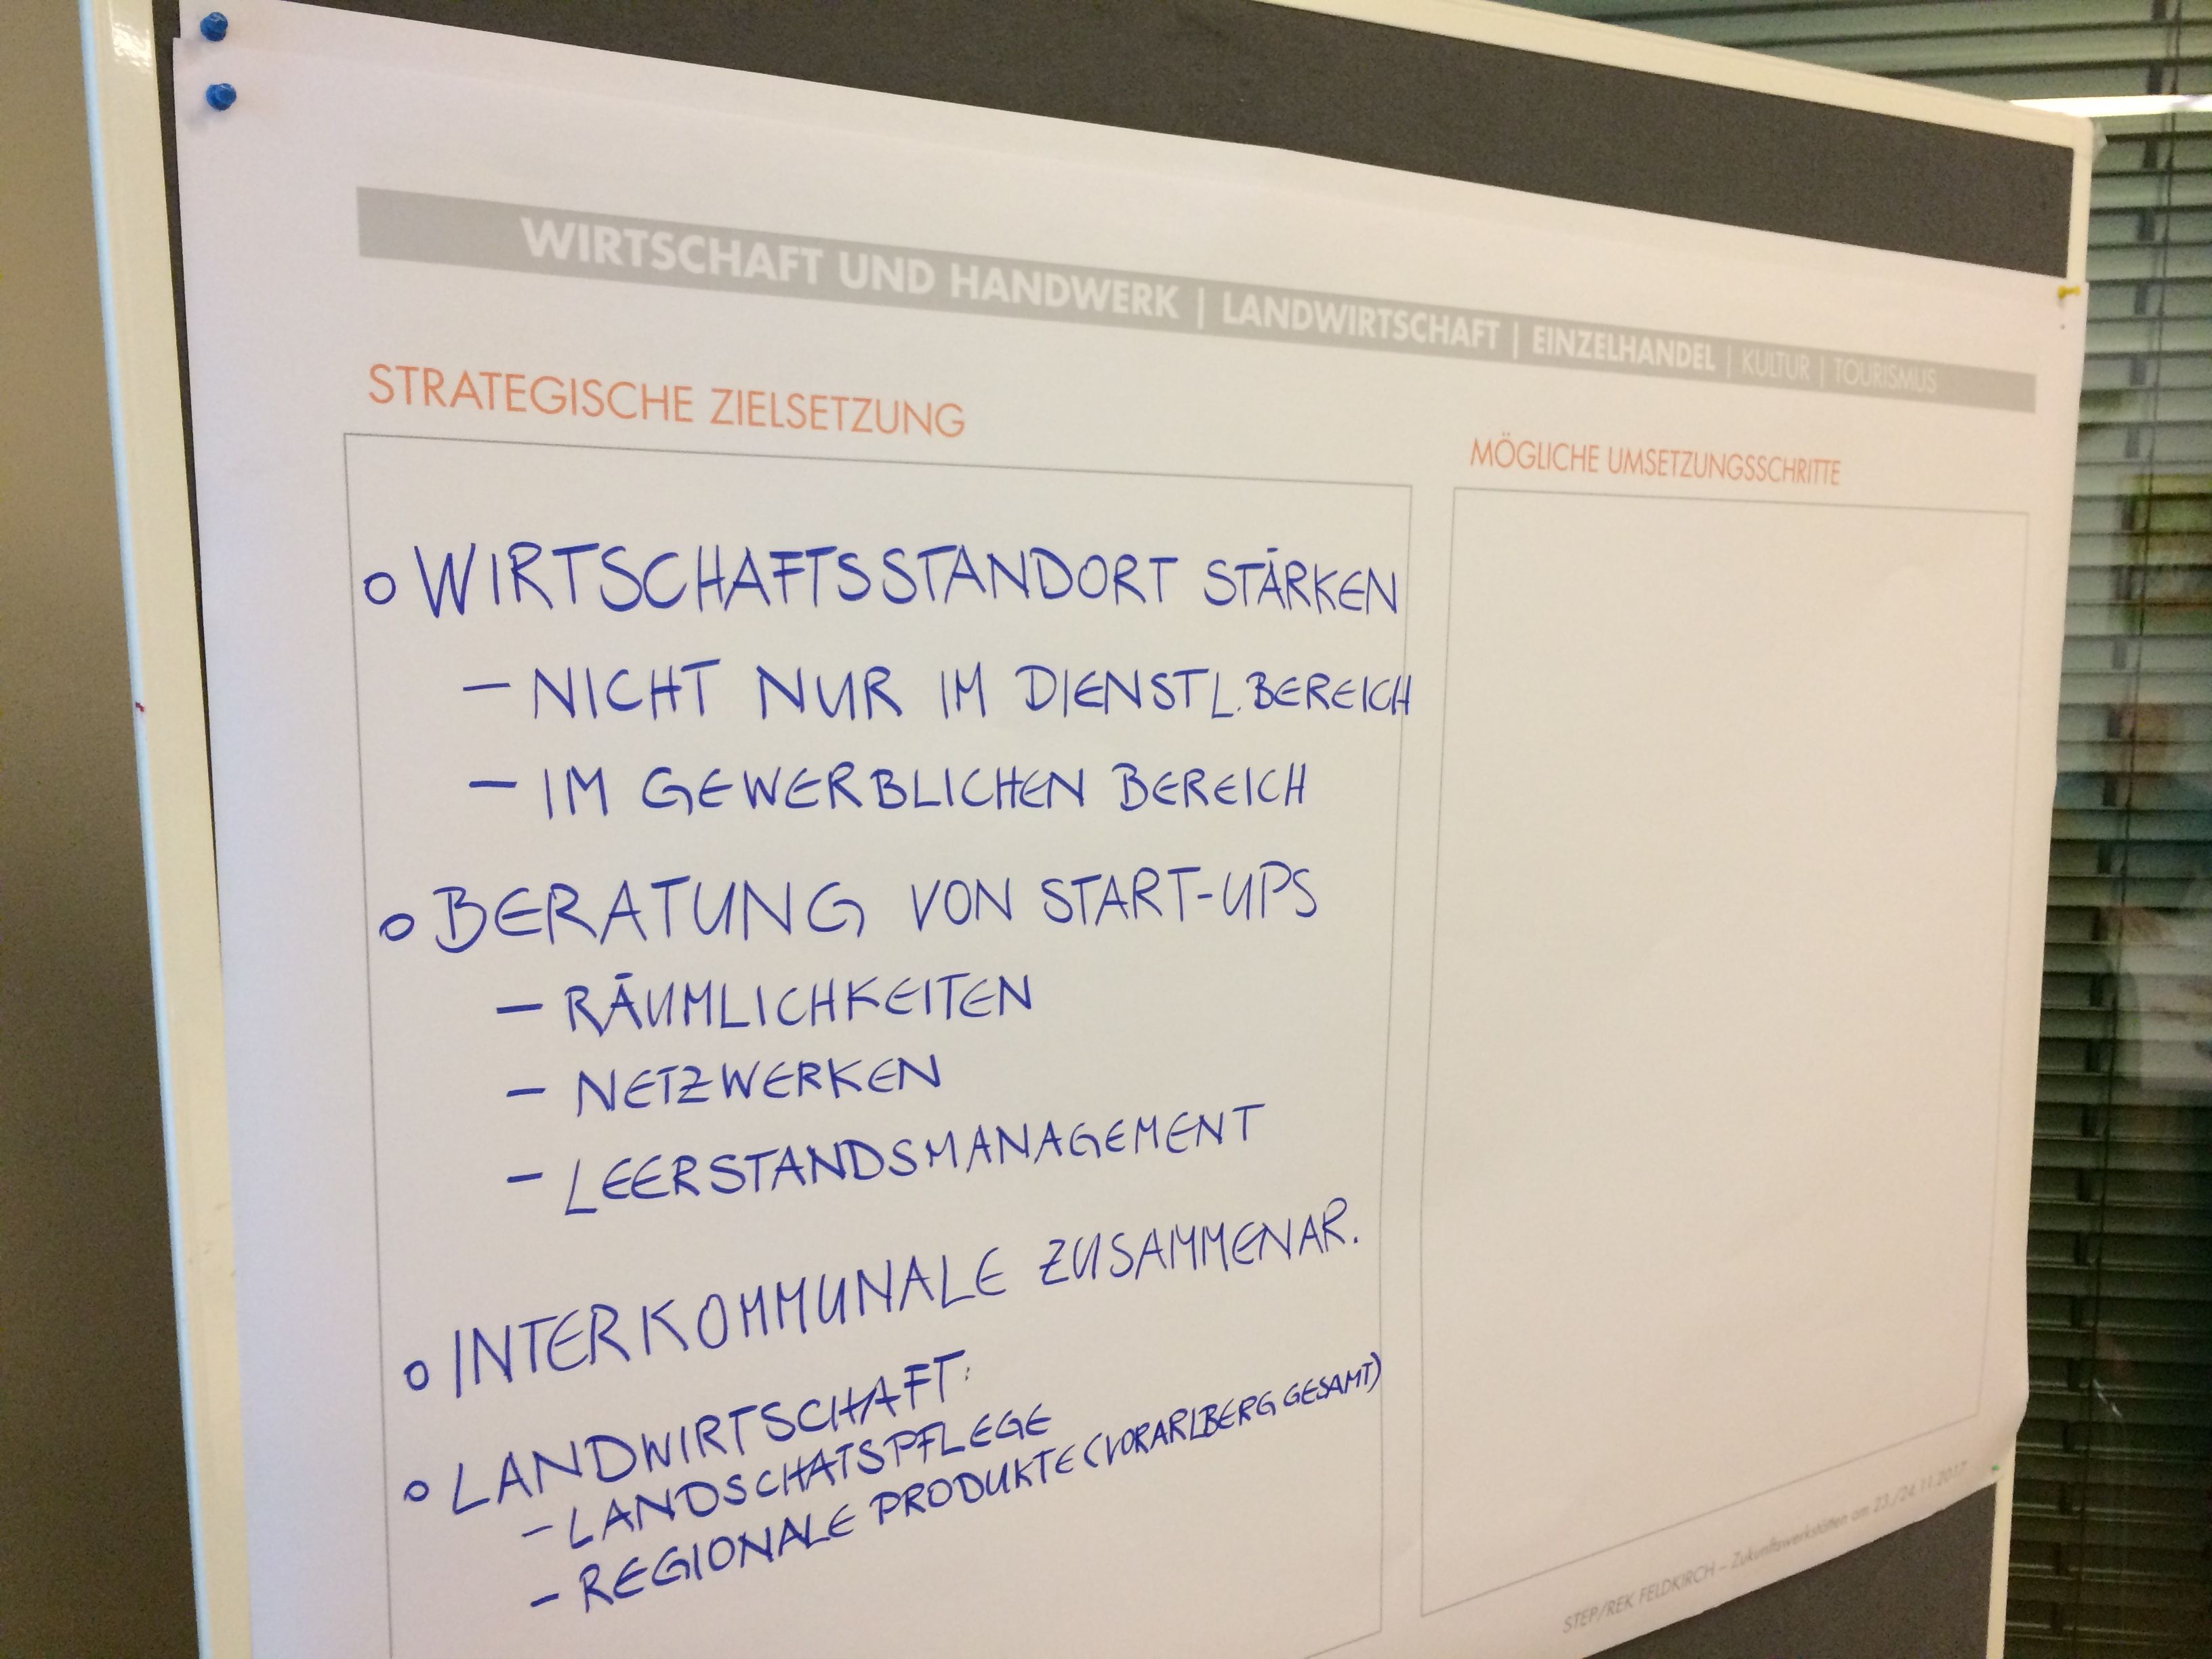 WIRTSCHAFT UND HANDWERK | LANDWIRTSCHAFT | EINZELHANDEL | KULTUR | TOURISMUS
STRATEGISCHE ZIELSETZUNG
o WIRTSCHAFTSSTANDORT STÄRKEN
– NICHT NUR IM DIENSTL. BEREICH
– IM GEWERBLICHEN BEREICH
o BERATUNG VON START-UPS
– RÄUMLICHKEITEN
– NETZWERKEN
– LEERSTANDSMANAGEMENT
o INTERKOMMUNALE ZUSAMMENAR.
o LANDWIRTSCHAFT:
– LANDSCHATSPFLEGE
– REGIONALE PRODUKTE (VORARLBERG GESAMT)
MÖGLICHE UMSETZUNGSSCHRITTE
STEP/REK FELDKIRCH – Zukunftswerkstätten am 23./24.11.2017